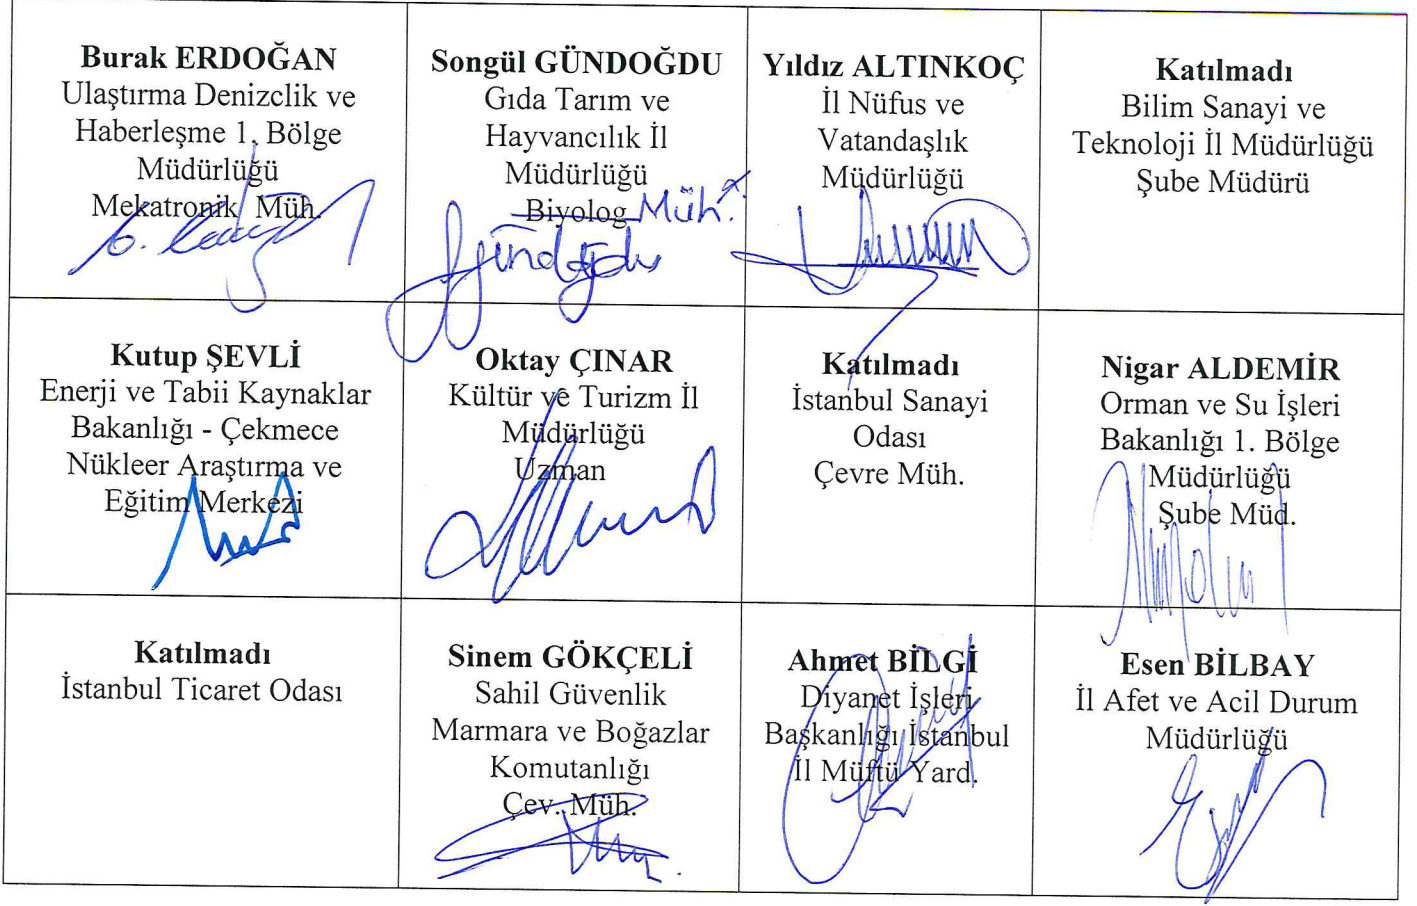 Burak ERDOĞAN
Ulaştırma Denizclik ve
Haberleşme 1. Bölge
Müdürlüğü
Mekatronik Müh.
Songül GÜNDOĞDU
Gıda Tarım ve
Hayvancılık İl
Müdürlüğü
Biyolog Müh.
Gündoğdu
Yıldız ALTINKOÇ
İl Nüfus ve
Vatandaşlık
Müdürlüğü
Katılmadı
Bilim Sanayi ve
Teknoloji İl Müdürlüğü
Şube Müdürü
Kutup ŞEVLİ
Enerji ve Tabii Kaynaklar
Bakanlığı - Çekmece
Nükleer Araştırma ve
Eğitim Merkezi
Oktay ÇINAR
Kültür ve Turizm İl
Müdürlüğü
Uzman
Katılmadı
İstanbul Sanayi
Odası
Çevre Müh.
Nigar ALDEMİR
Orman ve Su İşleri
Bakanlığı 1. Bölge
Müdürlüğü
Şube Müd.
Katılmadı
İstanbul Ticaret Odası
Sinem GÖKÇELİ
Sahil Güvenlik
Marmara ve Boğazlar
Komutanlığı
Çev. Müh.
Ahmet BİLGİ
Diyanet İşleri
Başkanlığı İstanbul
İl Müftü Yard.
Esen BİLBAY
İl Afet ve Acil Durum
Müdürlüğü